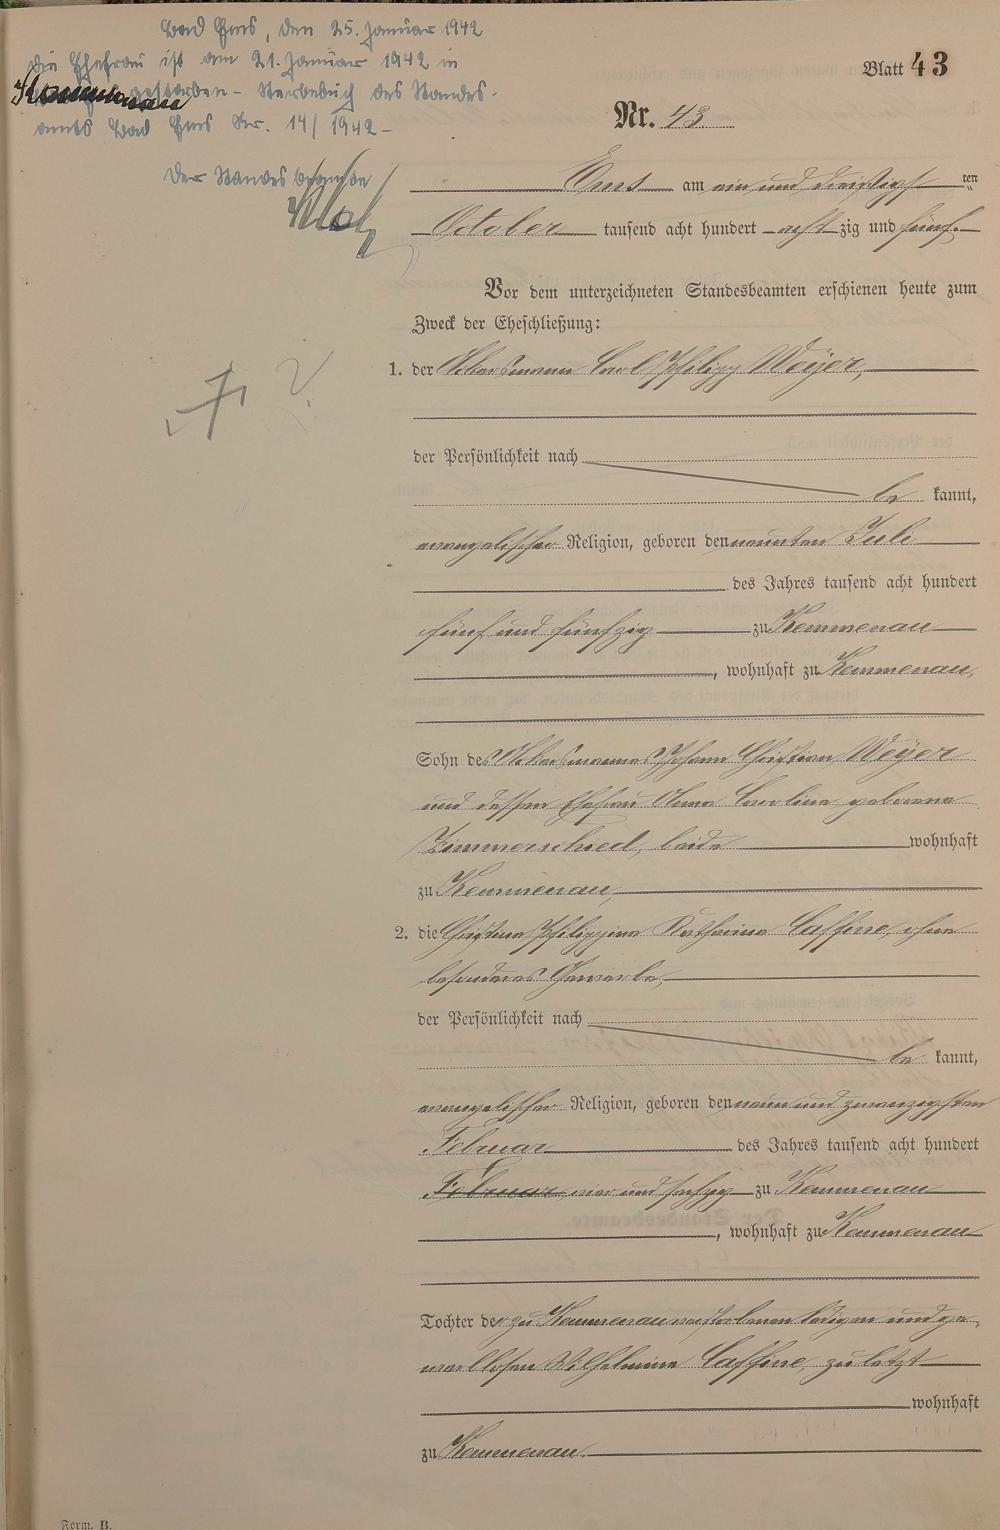 Bad Ems, den 25. Januar 1942
die Ehefrau ist am 21. Januar 1942 in
Kemmenau gestorben - Sterbebuch des Standes-
amts Bad Ems Nr. 14/1942 -
Der Standesbeamte
Blatt 43
Nr. 43
Ems am ein und dreißigsten
October tausend acht hundert achtzig und fünf.
Vor dem unterzeichneten Standesbeamten erschienen heute zum
Zweck der Eheschließung:
1. der Ackersmann Carl Philipp Weyer,
der Persönlichkeit nach
be kannt,
evangelischer Religion, geboren den neunten Juli
des Jahres tausend acht hundert
fünf und fünfzig zu Kemmenau
, wohnhaft zu Kemmenau,
Sohn des Ackersmannes Johann Christian Weyer
und dessen Ehefrau Anna Caroline geborene
Zimmerschied, beide wohnhaft
zu Kemmenau,
2. die Christine Philippine Katharine Caffine, ohne
besonderes Gewerbe,
der Persönlichkeit nach
be kannt,
evangelischer Religion, geboren den neun und zwanzigsten
Februar des Jahres tausend acht hundert
Februar vier und sechzig zu Kemmenau
, wohnhaft zu Kemmenau
Tochter der zu Kemmenau verstorbenen ledigen und ge-
werblosen Wilhelmine Caffine, zuletzt
wohnhaft
zu Kemmenau.
Form. B.